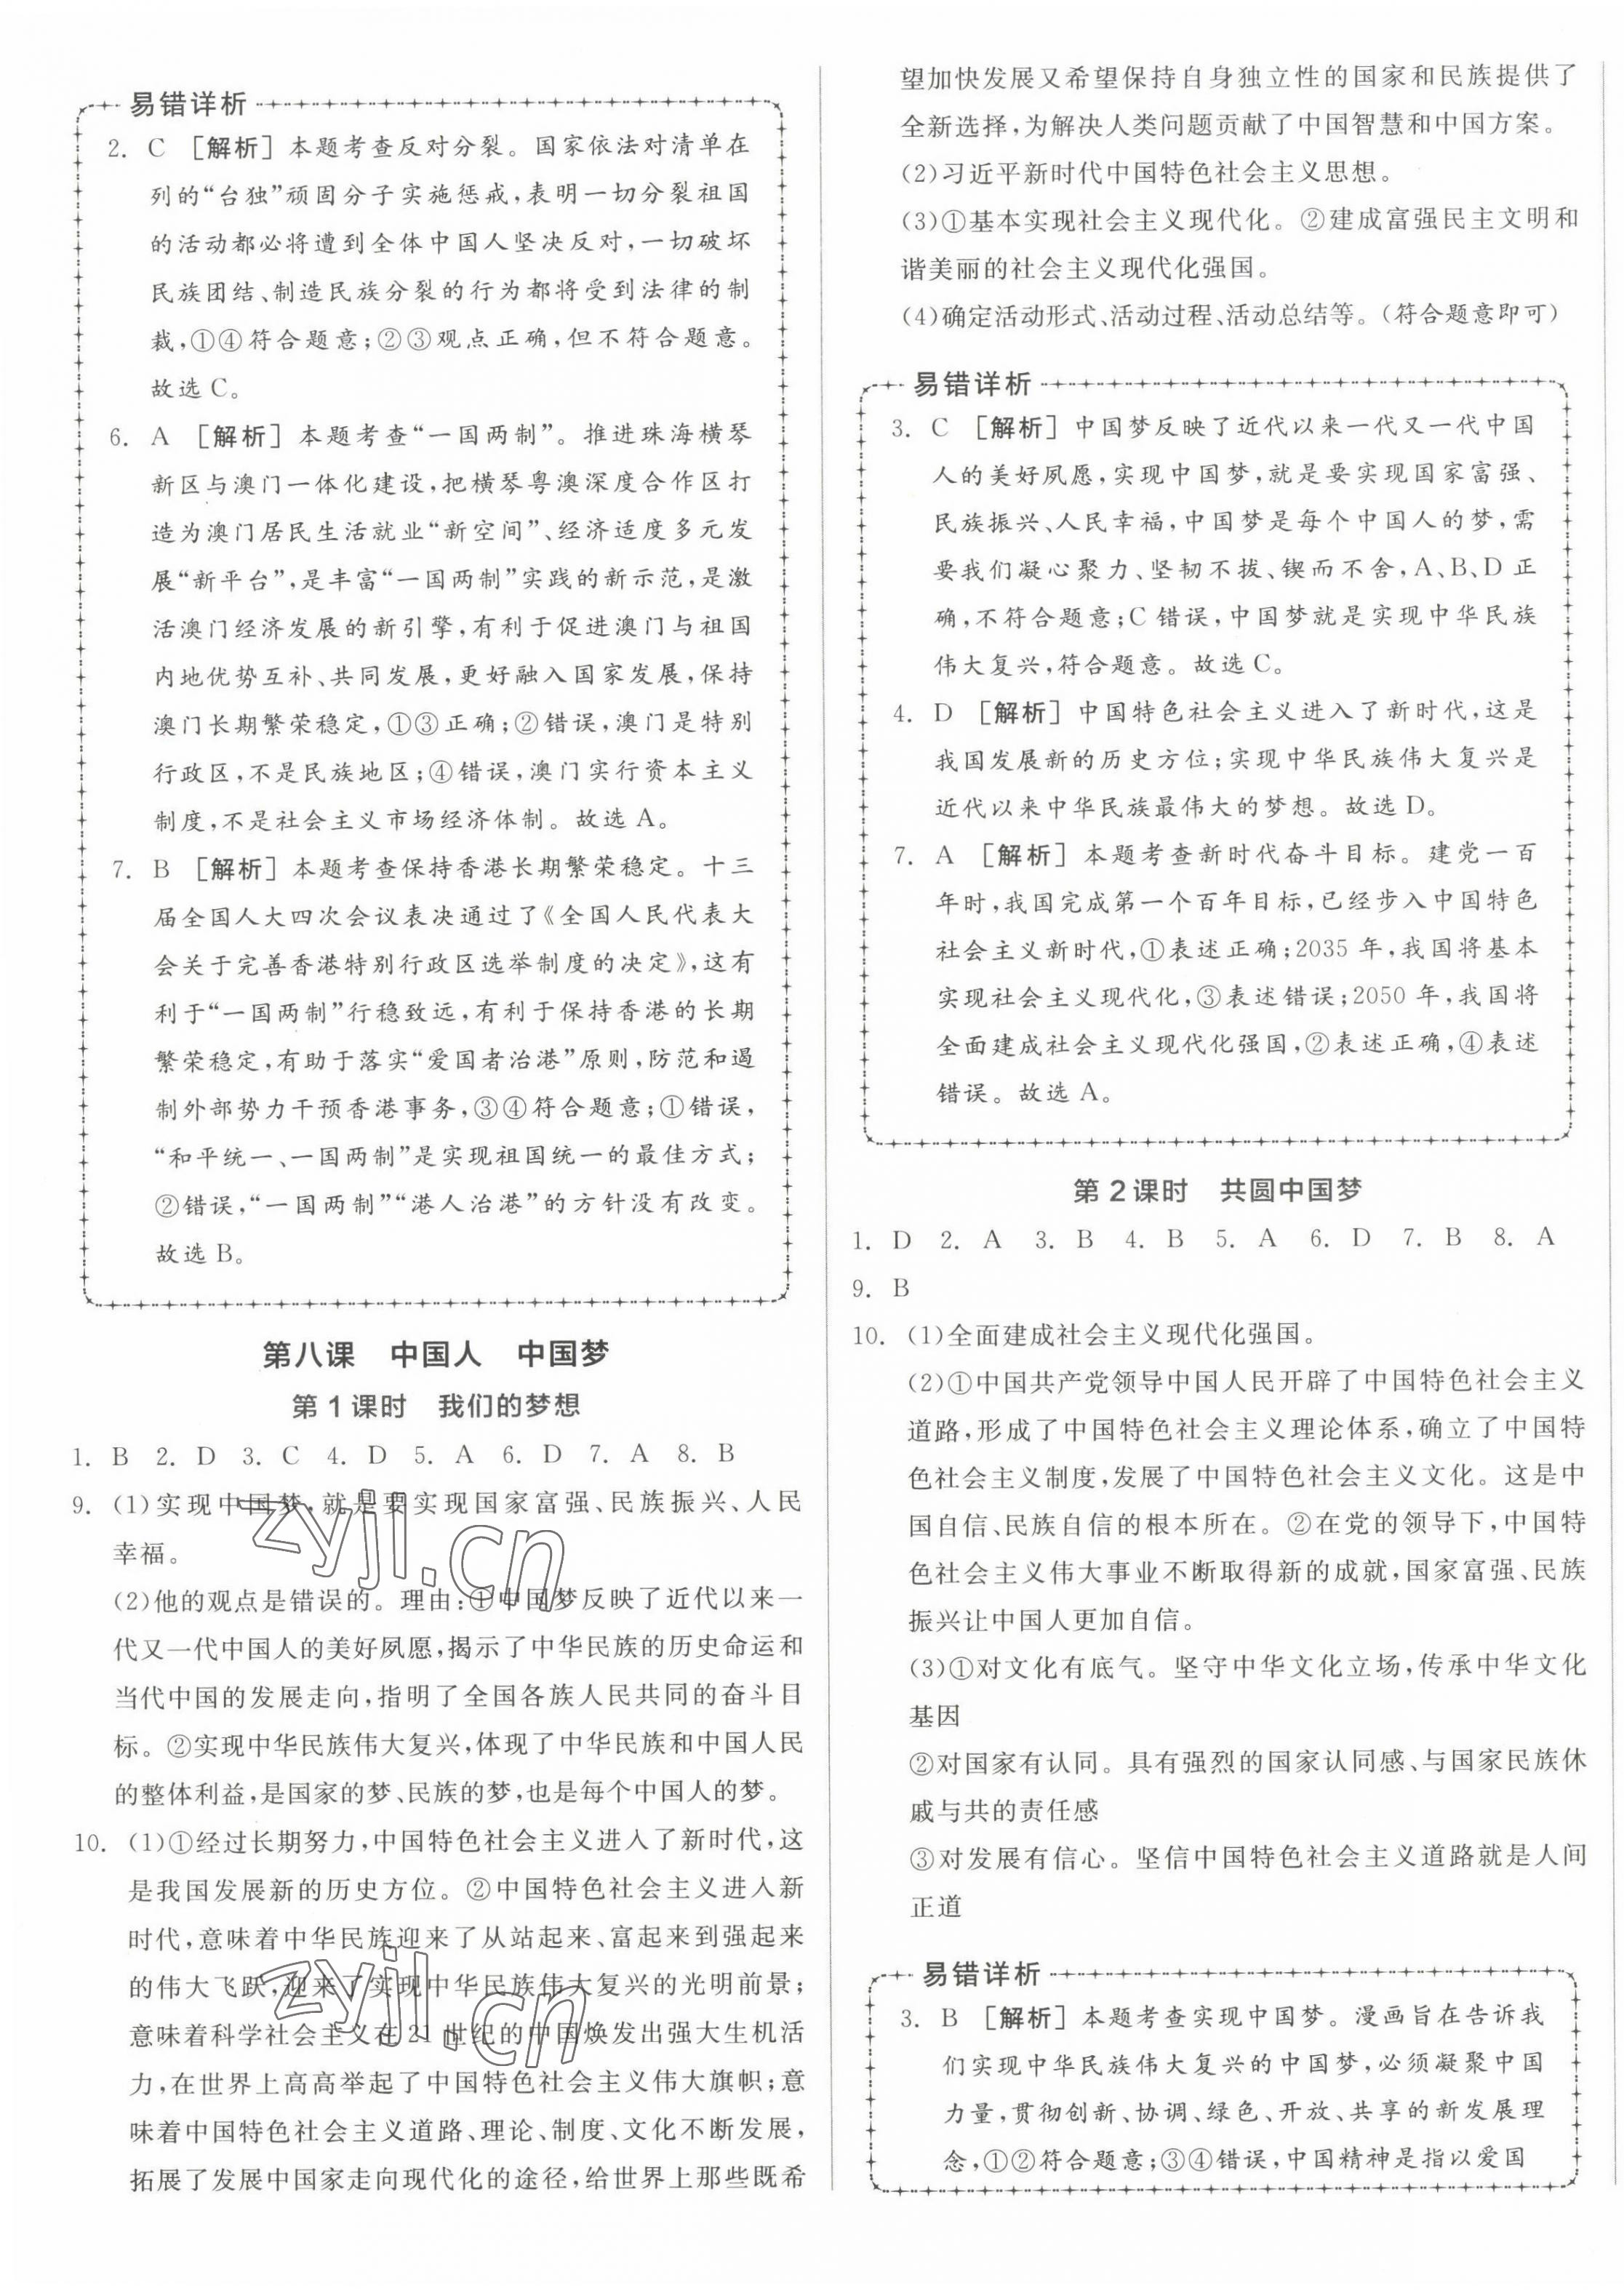 易错详析
2. C ［解析］本题考查反对分裂。国家依法对清单在
列的“台独”顽固分子实施惩戒,表明一切分裂祖国
的活动都必将遭到全体中国人坚决反对,一切破坏
民族团结、制造民族分裂的行为都将受到法律的制
裁,①④符合题意;②③观点正确,但不符合题意。
故选 C。
6. A ［解析］本题考查“一国两制”。推进珠海横琴
新区与澳门一体化建设,把横琴粤澳深度合作区打
造为澳门居民生活就业“新空间”、经济适度多元发
展“新平台”,是丰富“一国两制”实践的新示范,是激
活澳门经济发展的新引擎,有利于促进澳门与祖国
内地优势互补、共同发展,更好融入国家发展,保持
澳门长期繁荣稳定,①③正确;②错误,澳门是特别
行政区,不是民族地区;④错误,澳门实行资本主义
制度,不是社会主义市场经济体制。故选 A。
7. B ［解析］本题考查保持香港长期繁荣稳定。十三
届全国人大四次会议表决通过了《全国人民代表大
会关于完善香港特别行政区选举制度的决定》,这有
利于“一国两制”行稳致远,有利于保持香港的长期
繁荣稳定,有助于落实“爱国者治港”原则,防范和遏
制外部势力干预香港事务,③④符合题意;①错误,
“和平统一、一国两制”是实现祖国统一的最佳方式;
②错误,“一国两制”“港人治港”的方针没有改变。
故选 B。
第八课 中国人 中国梦
第 1 课时 我们的梦想
1. B 2. D 3. C 4. D 5. A 6. D 7. A 8. B
9. (1)实现中国梦,就是要实现国家富强、民族振兴、人民
幸福。
(2)他的观点是错误的。理由:①中国梦反映了近代以来一
代又一代中国人的美好夙愿,揭示了中华民族的历史命运和
当代中国的发展走向,指明了全国各族人民共同的奋斗目
标。②实现中华民族伟大复兴,体现了中华民族和中国人民
的整体利益,是国家的梦、民族的梦,也是每个中国人的梦。
10. (1)①经过长期努力,中国特色社会主义进入了新时代,这
是我国发展新的历史方位。②中国特色社会主义进入新
时代,意味着中华民族迎来了从站起来、富起来到强起来
的伟大飞跃,迎来了实现中华民族伟大复兴的光明前景;
意味着科学社会主义在 21 世纪的中国焕发出强大生机活
力,在世界上高高举起了中国特色社会主义伟大旗帜;意
味着中国特色社会主义道路、理论、制度、文化不断发展,
拓展了发展中国家走向现代化的途径,给世界上那些既希
zyjl.cn
zyjl.cn
望加快发展又希望保持自身独立性的国家和民族提供了
全新选择,为解决人类问题贡献了中国智慧和中国方案。
(2)习近平新时代中国特色社会主义思想。
(3)①基本实现社会主义现代化。②建成富强民主文明和
谐美丽的社会主义现代化强国。
(4)确定活动形式、活动过程、活动总结等。(符合题意即可)
易错详析
3. C ［解析］中国梦反映了近代以来一代又一代中国
人的美好夙愿,实现中国梦,就是要实现国家富强、
民族振兴、人民幸福,中国梦是每个中国人的梦,需
要我们凝心聚力、坚韧不拔、锲而不舍,A、B、D 正
确,不符合题意;C 错误,中国梦就是实现中华民族
伟大复兴,符合题意。故选 C。
4. D ［解析］中国特色社会主义进入了新时代,这是
我国发展新的历史方位;实现中华民族伟大复兴是
近代以来中华民族最伟大的梦想。故选 D。
7. A ［解析］本题考查新时代奋斗目标。建党一百
年时,我国完成第一个百年目标,已经步入中国特色
社会主义新时代,①表述正确;2035 年,我国将基本
实现社会主义现代化,③表述错误;2050 年,我国将
全面建成社会主义现代化强国,②表述正确,④表述
错误。故选 A。
第 2 课时 共圆中国梦
1. D 2. A 3. B 4. B 5. A 6. D 7. B 8. A
9. B
10. (1)全面建成社会主义现代化强国。
(2)①中国共产党领导中国人民开辟了中国特色社会主义
道路,形成了中国特色社会主义理论体系,确立了中国特
色社会主义制度,发展了中国特色社会主义文化。这是中
国自信、民族自信的根本所在。②在党的领导下,中国特
色社会主义伟大事业不断取得新的成就,国家富强、民族
振兴让中国人更加自信。
(3)①对文化有底气。坚守中华文化立场,传承中华文化
基因
②对国家有认同。具有强烈的国家认同感、与国家民族休
戚与共的责任感
③对发展有信心。坚信中国特色社会主义道路就是人间
正道
易错详析
3. B ［解析］本题考查实现中国梦。漫画旨在告诉我
们实现中华民族伟大复兴的中国梦,必须凝聚中国
力量,贯彻创新、协调、绿色、开放、共享的新发展理
念,①②符合题意;③④错误,中国精神是指以爱国